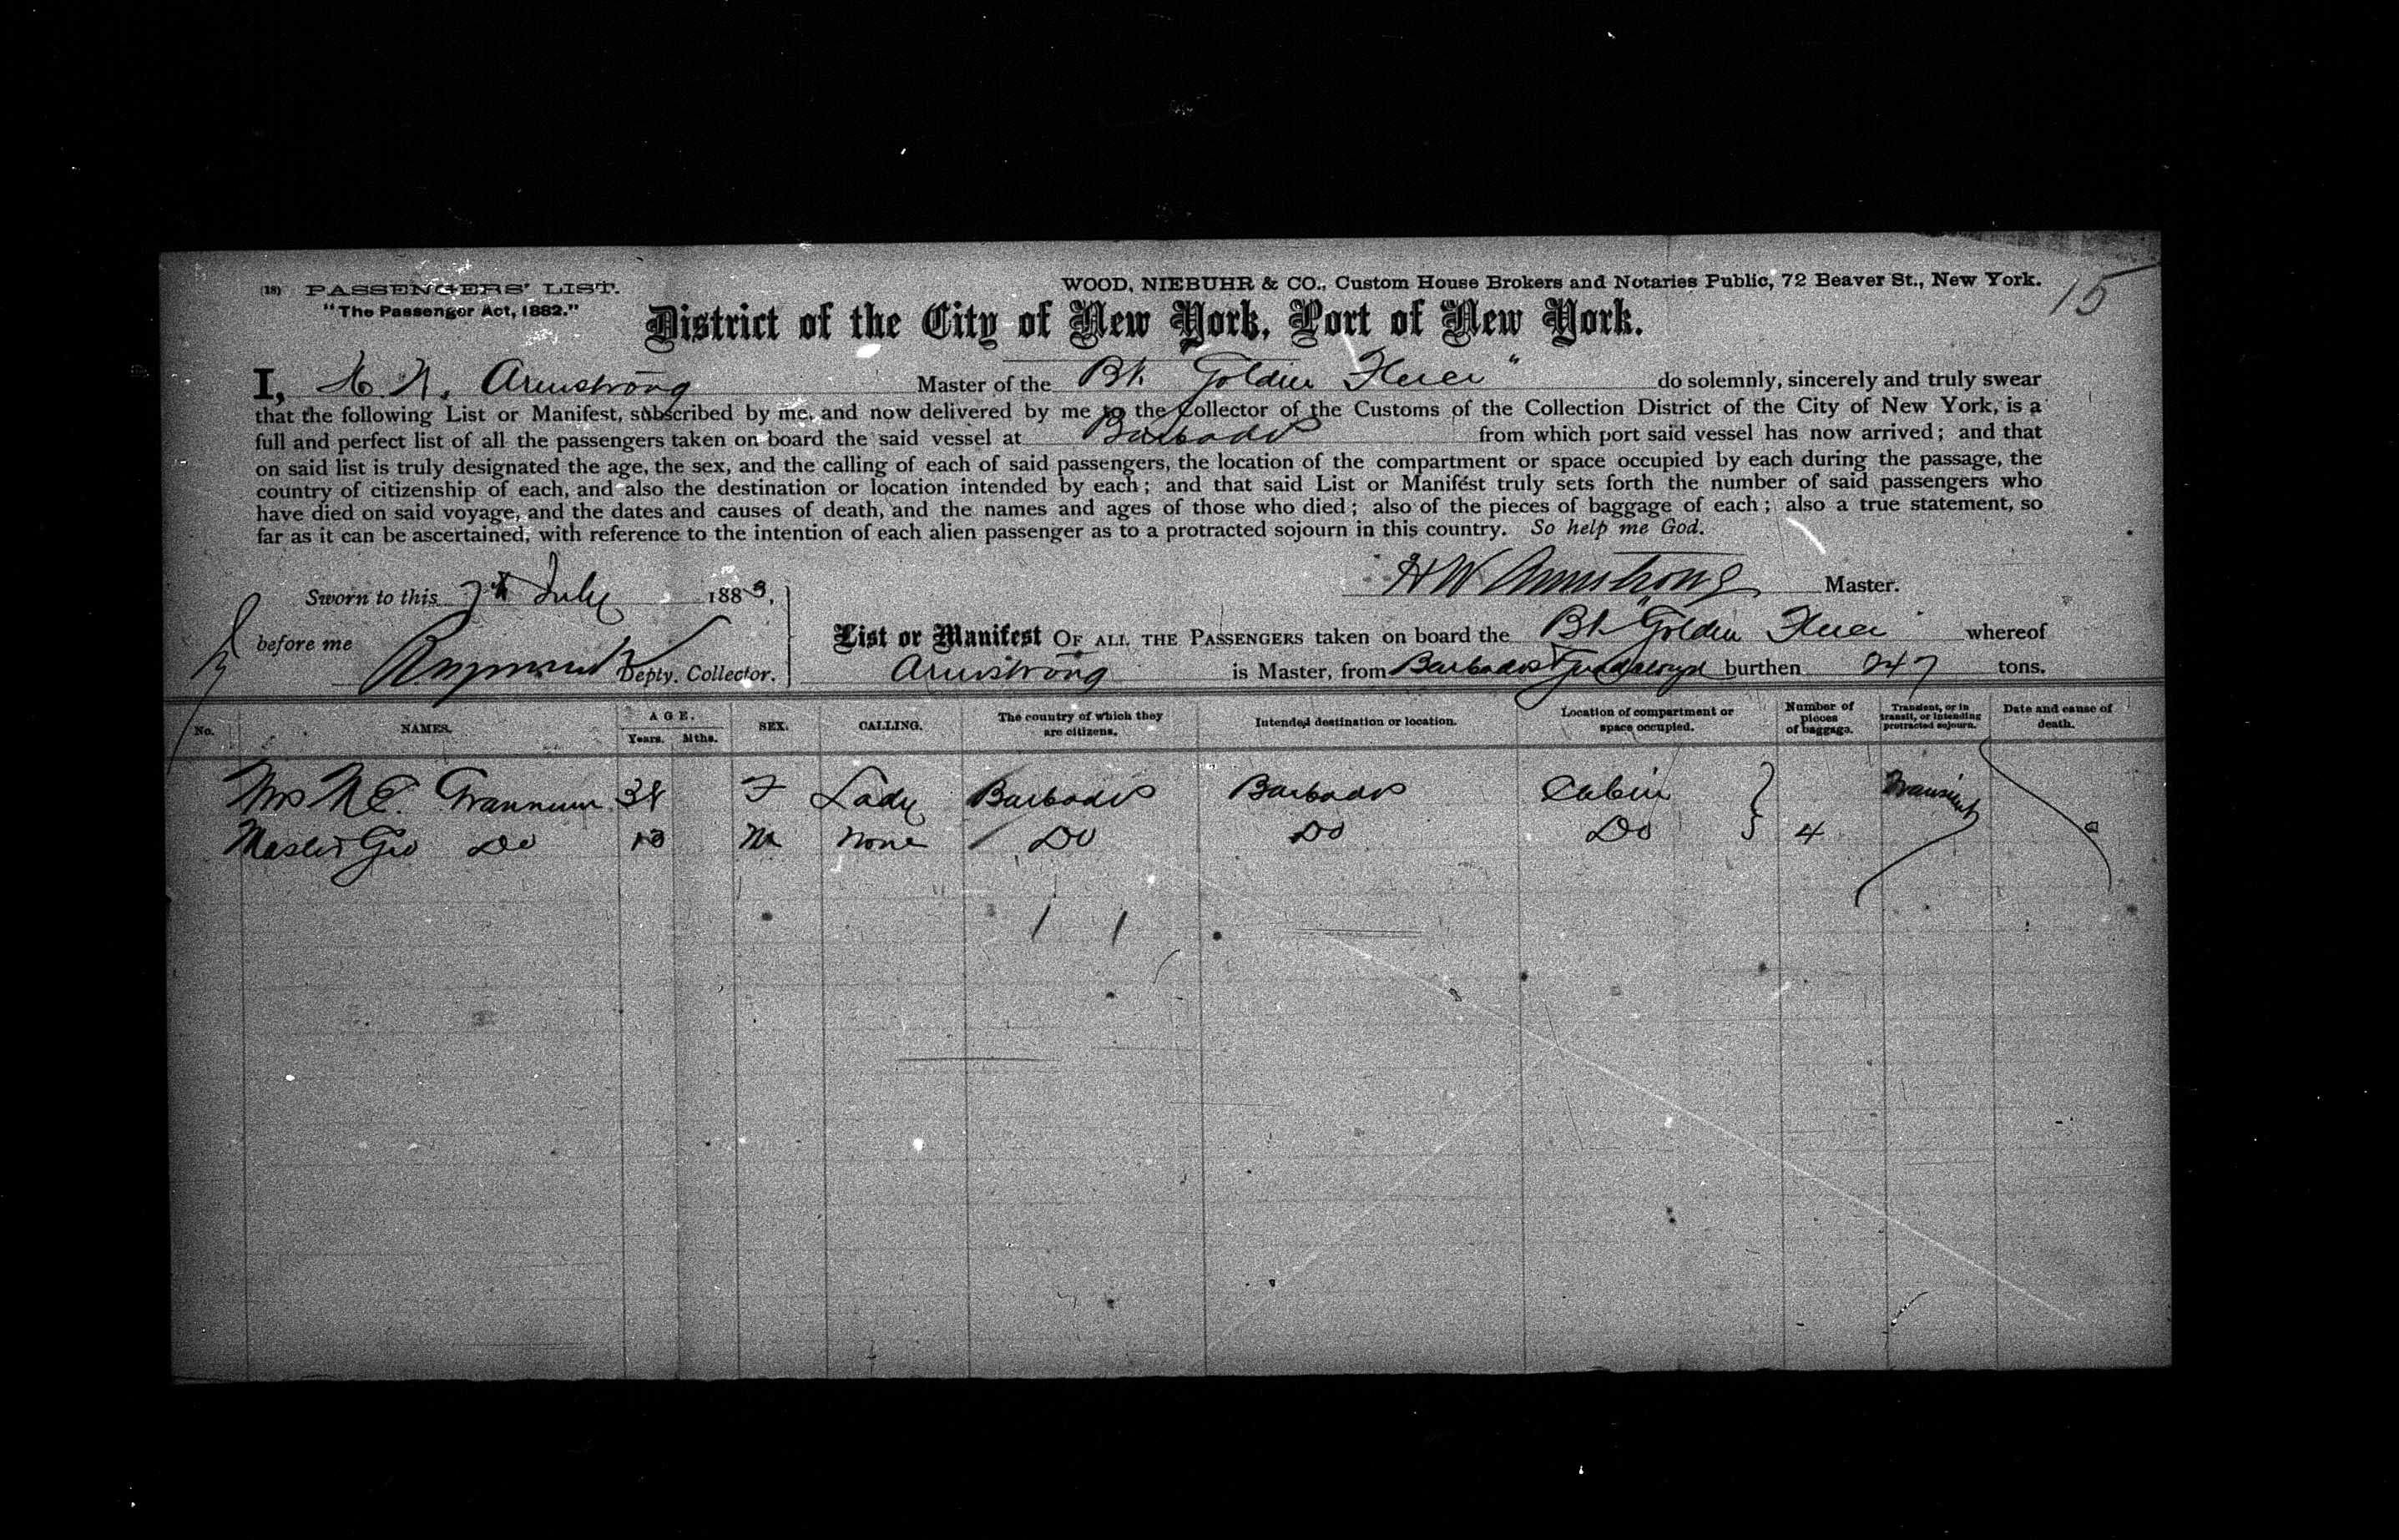 (18) PASSENGERS' LIST.
"The Passenger Act, 1882."
WOOD, NIEBUHR & CO., Custom House Brokers and Notaries Public, 72 Beaver St., New York.
15
District of the City of New York, Port of New York.
I, Armstrong Master of the Bk Golden do solemnly, sincerely and truly swear
that the following List or Manifest, subscribed by me, and now delivered by me to the Collector of the Customs of the Collection District of the City of New York, is a
full and perfect list of all the passengers taken on board the said vessel at Barbados from which port said vessel has now arrived; and that
on said list is truly designated the age, the sex, and the calling of each of said passengers, the location of the compartment or space occupied by each during the passage, the
country of citizenship of each, and also the destination or location intended by each; and that said List or Manifest truly sets forth the number of said passengers who
have died on said voyage, and the dates and causes of death, and the names and ages of those who died; also of the pieces of baggage of each; also a true statement, so
far as it can be ascertained, with reference to the intention of each alien passenger as to a protracted sojourn in this country. So help me God.
H W Armstrong Master.
Sworn to this July 1883,
before me Deply. Collector.
List or Manifest OF ALL THE PASSENGERS taken on board the Bk Golden whereof
Armstrong is Master, from Barbados burthen 247 tons.
No. NAMES. AGE. Years. Mths. SEX. CALLING. The country of which they are citizens. Intended destination or location. Location of compartment or space occupied. Number of pieces of baggage. Transient, or in transit, or intending protracted sojourn. Date and cause of death.
Mrs N E. Grannum 38 F Lady Barbados Barbados Cabin Transient
Master Geo Do 13 M None Do Do Do 4
1 1